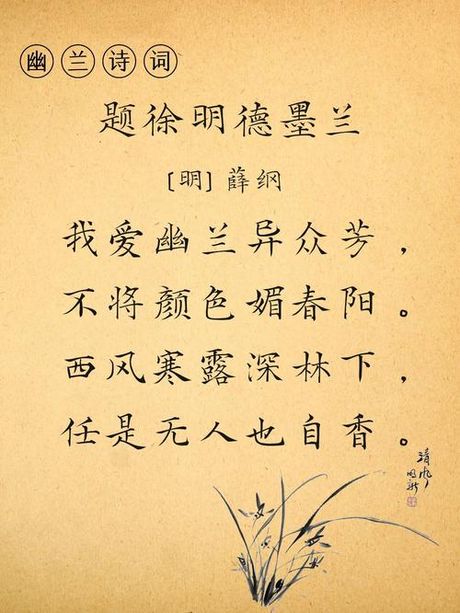 幽兰诗词
题徐明德墨兰
[明] 薛纲
我爱幽兰异众芳，
不将颜色媚春阳。
西风寒露深林下，
任是无人也自香。